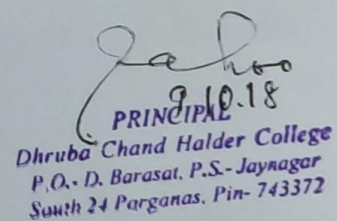 9.10.18
PRINCIPAL
Dhruba Chand Halder College
P.O.- D. Barasat, P.S.- Jaynagar
South 24 Parganas, Pin- 743372